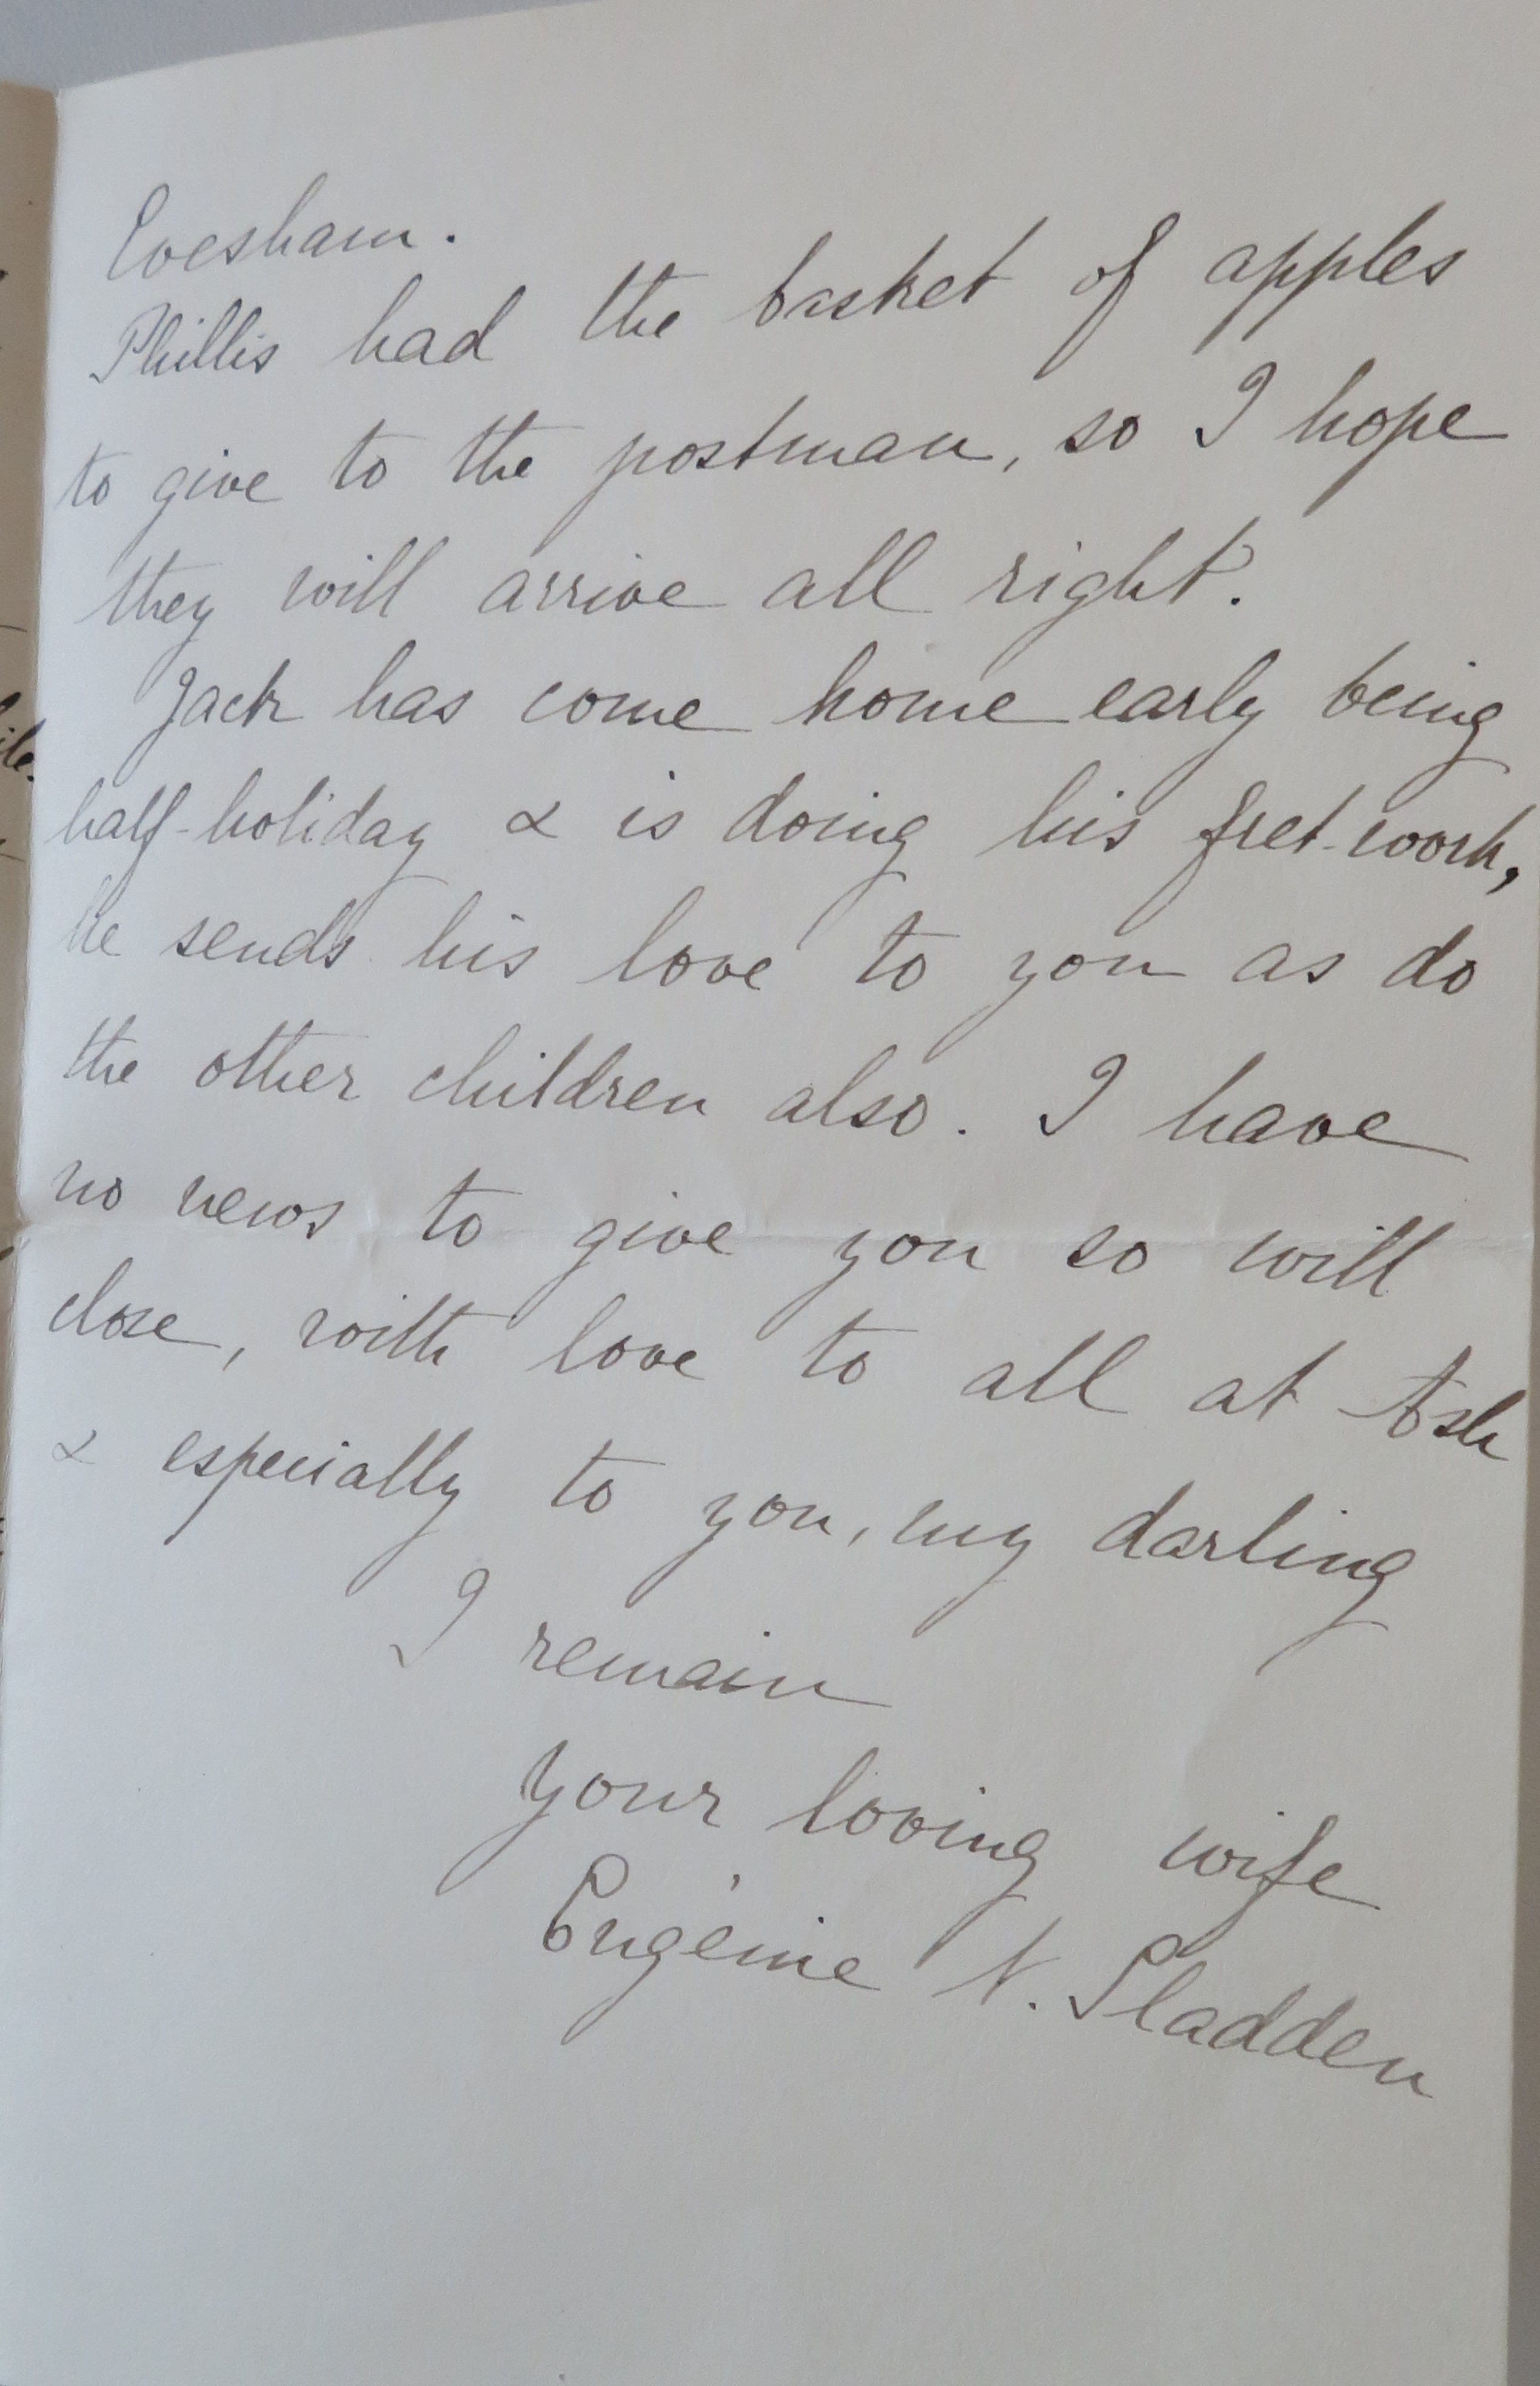 Evesham.
Phillis had the basket of apples
to give to the postman, so I hope
they will arrive all right.
Jack has come home early being
half-holiday & is doing his fret-work,
he sends his love to you as do
the other children also. I have
no news to give you so will
close, with love to all at Ash
& especially to you, my darling
I remain
your loving wife
Eugénie N. Sladden